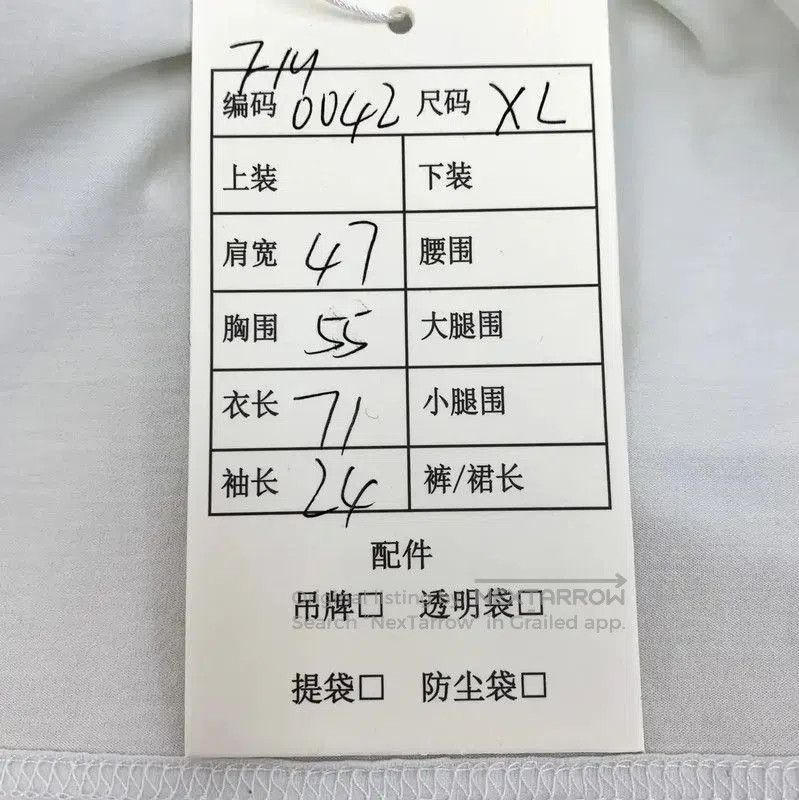 7-14
编码 0042 尺码 XL
上装 下装
肩宽 47 腰围
胸围 55 大腿围
衣长 71 小腿围
袖长 24 裤/裙长
配件
吊牌□ 透明袋□
Original listing on NEXTARROW
Search "NexTarrow" in Grailed app.
提袋□ 防尘袋□